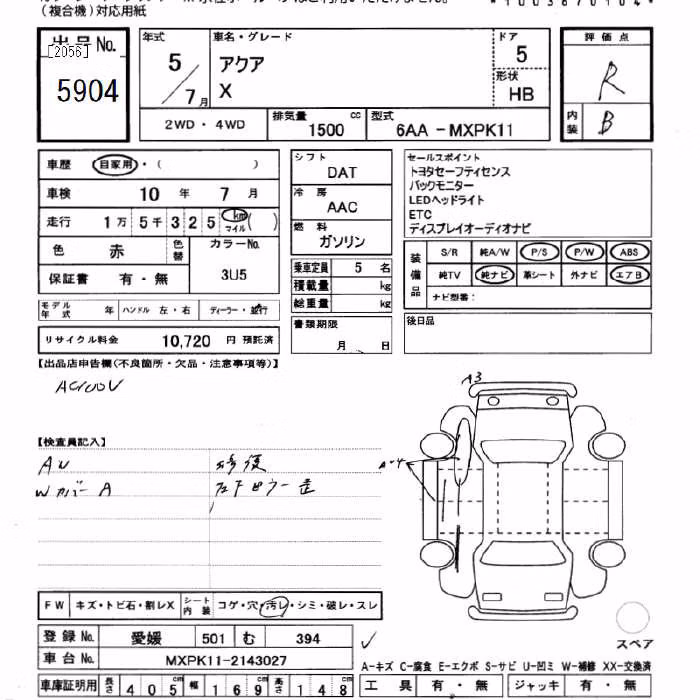 （複合機）対応用紙
*1003870104*
出品No. [2056] 5904
年式 5／7月
車名・グレード アクア X
ドア 5
形状 HB
評価点 R
内装 B
2WD・4WD
排気量 1500 cc
型式 6AA -MXPK11
車歴 自家用・（ ）
車検 10 年 7 月
走行 1万 5千 3 2 5 km マイル ( )
色 赤 色替 カラーNo. 3U5
保証書 有・無
モデル年式 年 ハンドル 左・右 ディーラー・並行
リサイクル料金 10,720 円 預託済
シフト DAT
冷房 AAC
燃料 ガソリン
乗車定員 5 名
積載量 kg
総重量 kg
書類期限 月 日
セールスポイント
トヨタセーフティセンス
バックモニター
LEDヘッドライト
ETC
ディスプレイオーディオナビ
装備品 S/R 純A/W P/S P/W ABS
純TV 純ナビ 革シート 外ナビ エアB
ナビ型番：
後日品
【出品店申告欄(不良箇所・欠品・注意事項等)】
AC100V
【検査員記入】
AU
Wカバー A
A3
A-4
FW キズ・トビ石・割レX シート内装 コゲ・穴・汚レ・シミ・破レ・スレ
登録No. 愛媛 501 む 394
車台No. MXPK11-2143027
車庫証明用 長さ 405 cm 幅 169 cm 高さ 148 cm
スペア
A-キズ C-腐食 E-エクボ S-サビ U-凹ミ W-補修 XX-交換済
工具 有・無 ジャッキ 有・無